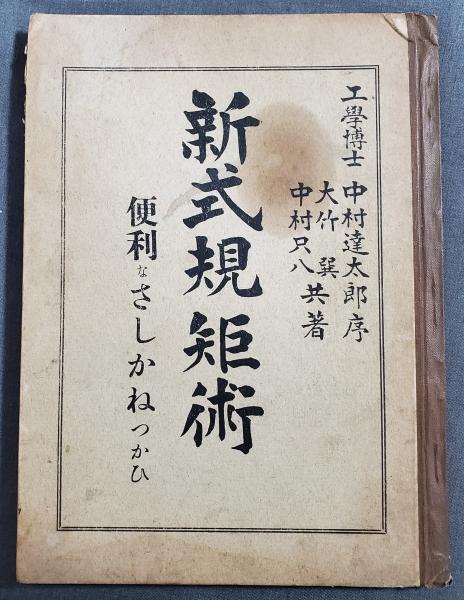 工學博士 中村達太郎序
大竹 巽
中村只八 共著
新式規矩術
便利なさしかねつかひ